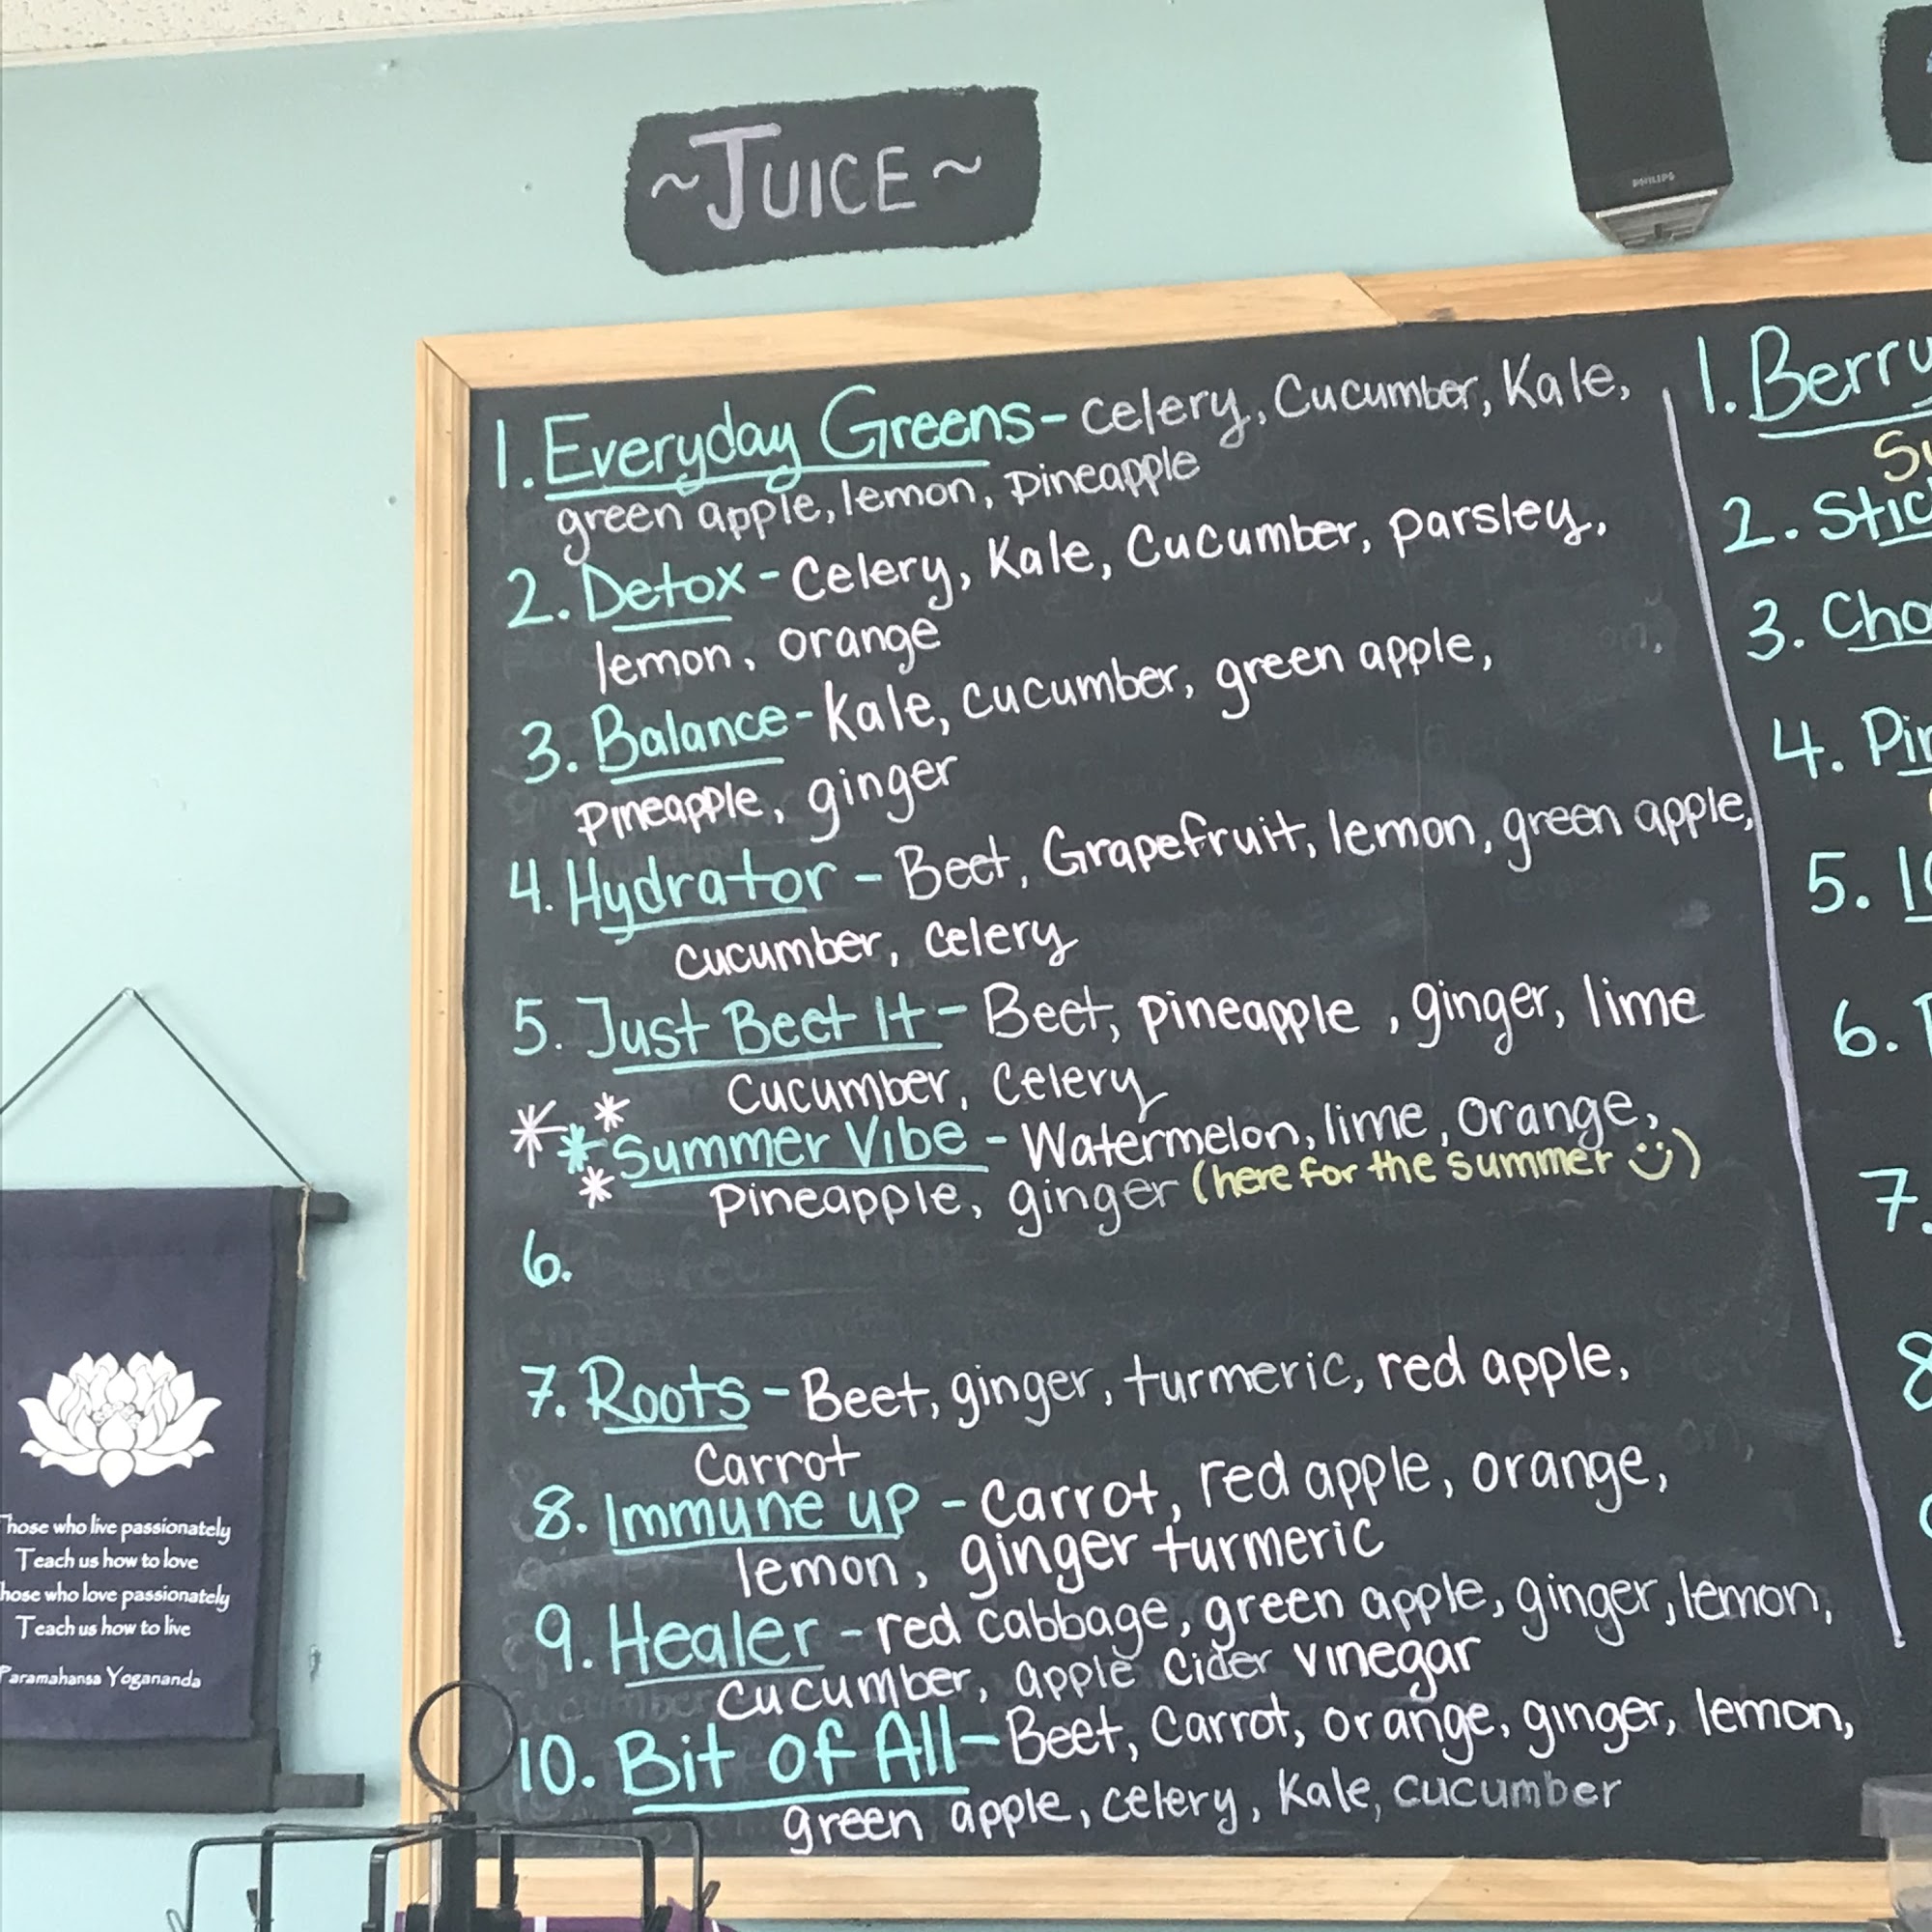 ~JUICE~
PHILIPS
1. Everyday Greens - celery, Cucumber, Kale,
green apple, lemon, pineapple
2. Detox - Celery, Kale, Cucumber, parsley,
lemon, orange
3. Balance - Kale, cucumber, green apple,
Pineapple, ginger
4. Hydrator - Beet, Grapefruit, lemon, green apple,
cucumber, celery
5. Just Beet It - Beet, pineapple, ginger, lime
Cucumber, Celery
Summer Vibe - Watermelon, lime, orange,
Pineapple, ginger (here for the summer :))
6.
7. Roots - Beet, ginger, turmeric, red apple,
Carrot
8. Immune up - Carrot, red apple, orange,
lemon, ginger turmeric
9. Healer - red cabbage, green apple, ginger, lemon,
cucumber, apple cider vinegar
10. Bit of All - Beet, Carrot, orange, ginger, lemon,
green apple, celery, Kale, cucumber
1. Berry
2.
3.
4.
5.
6.
7.
8
Those who live passionately
Teach us how to love
Those who love passionately
Teach us how to live
Paramahansa Yogananda